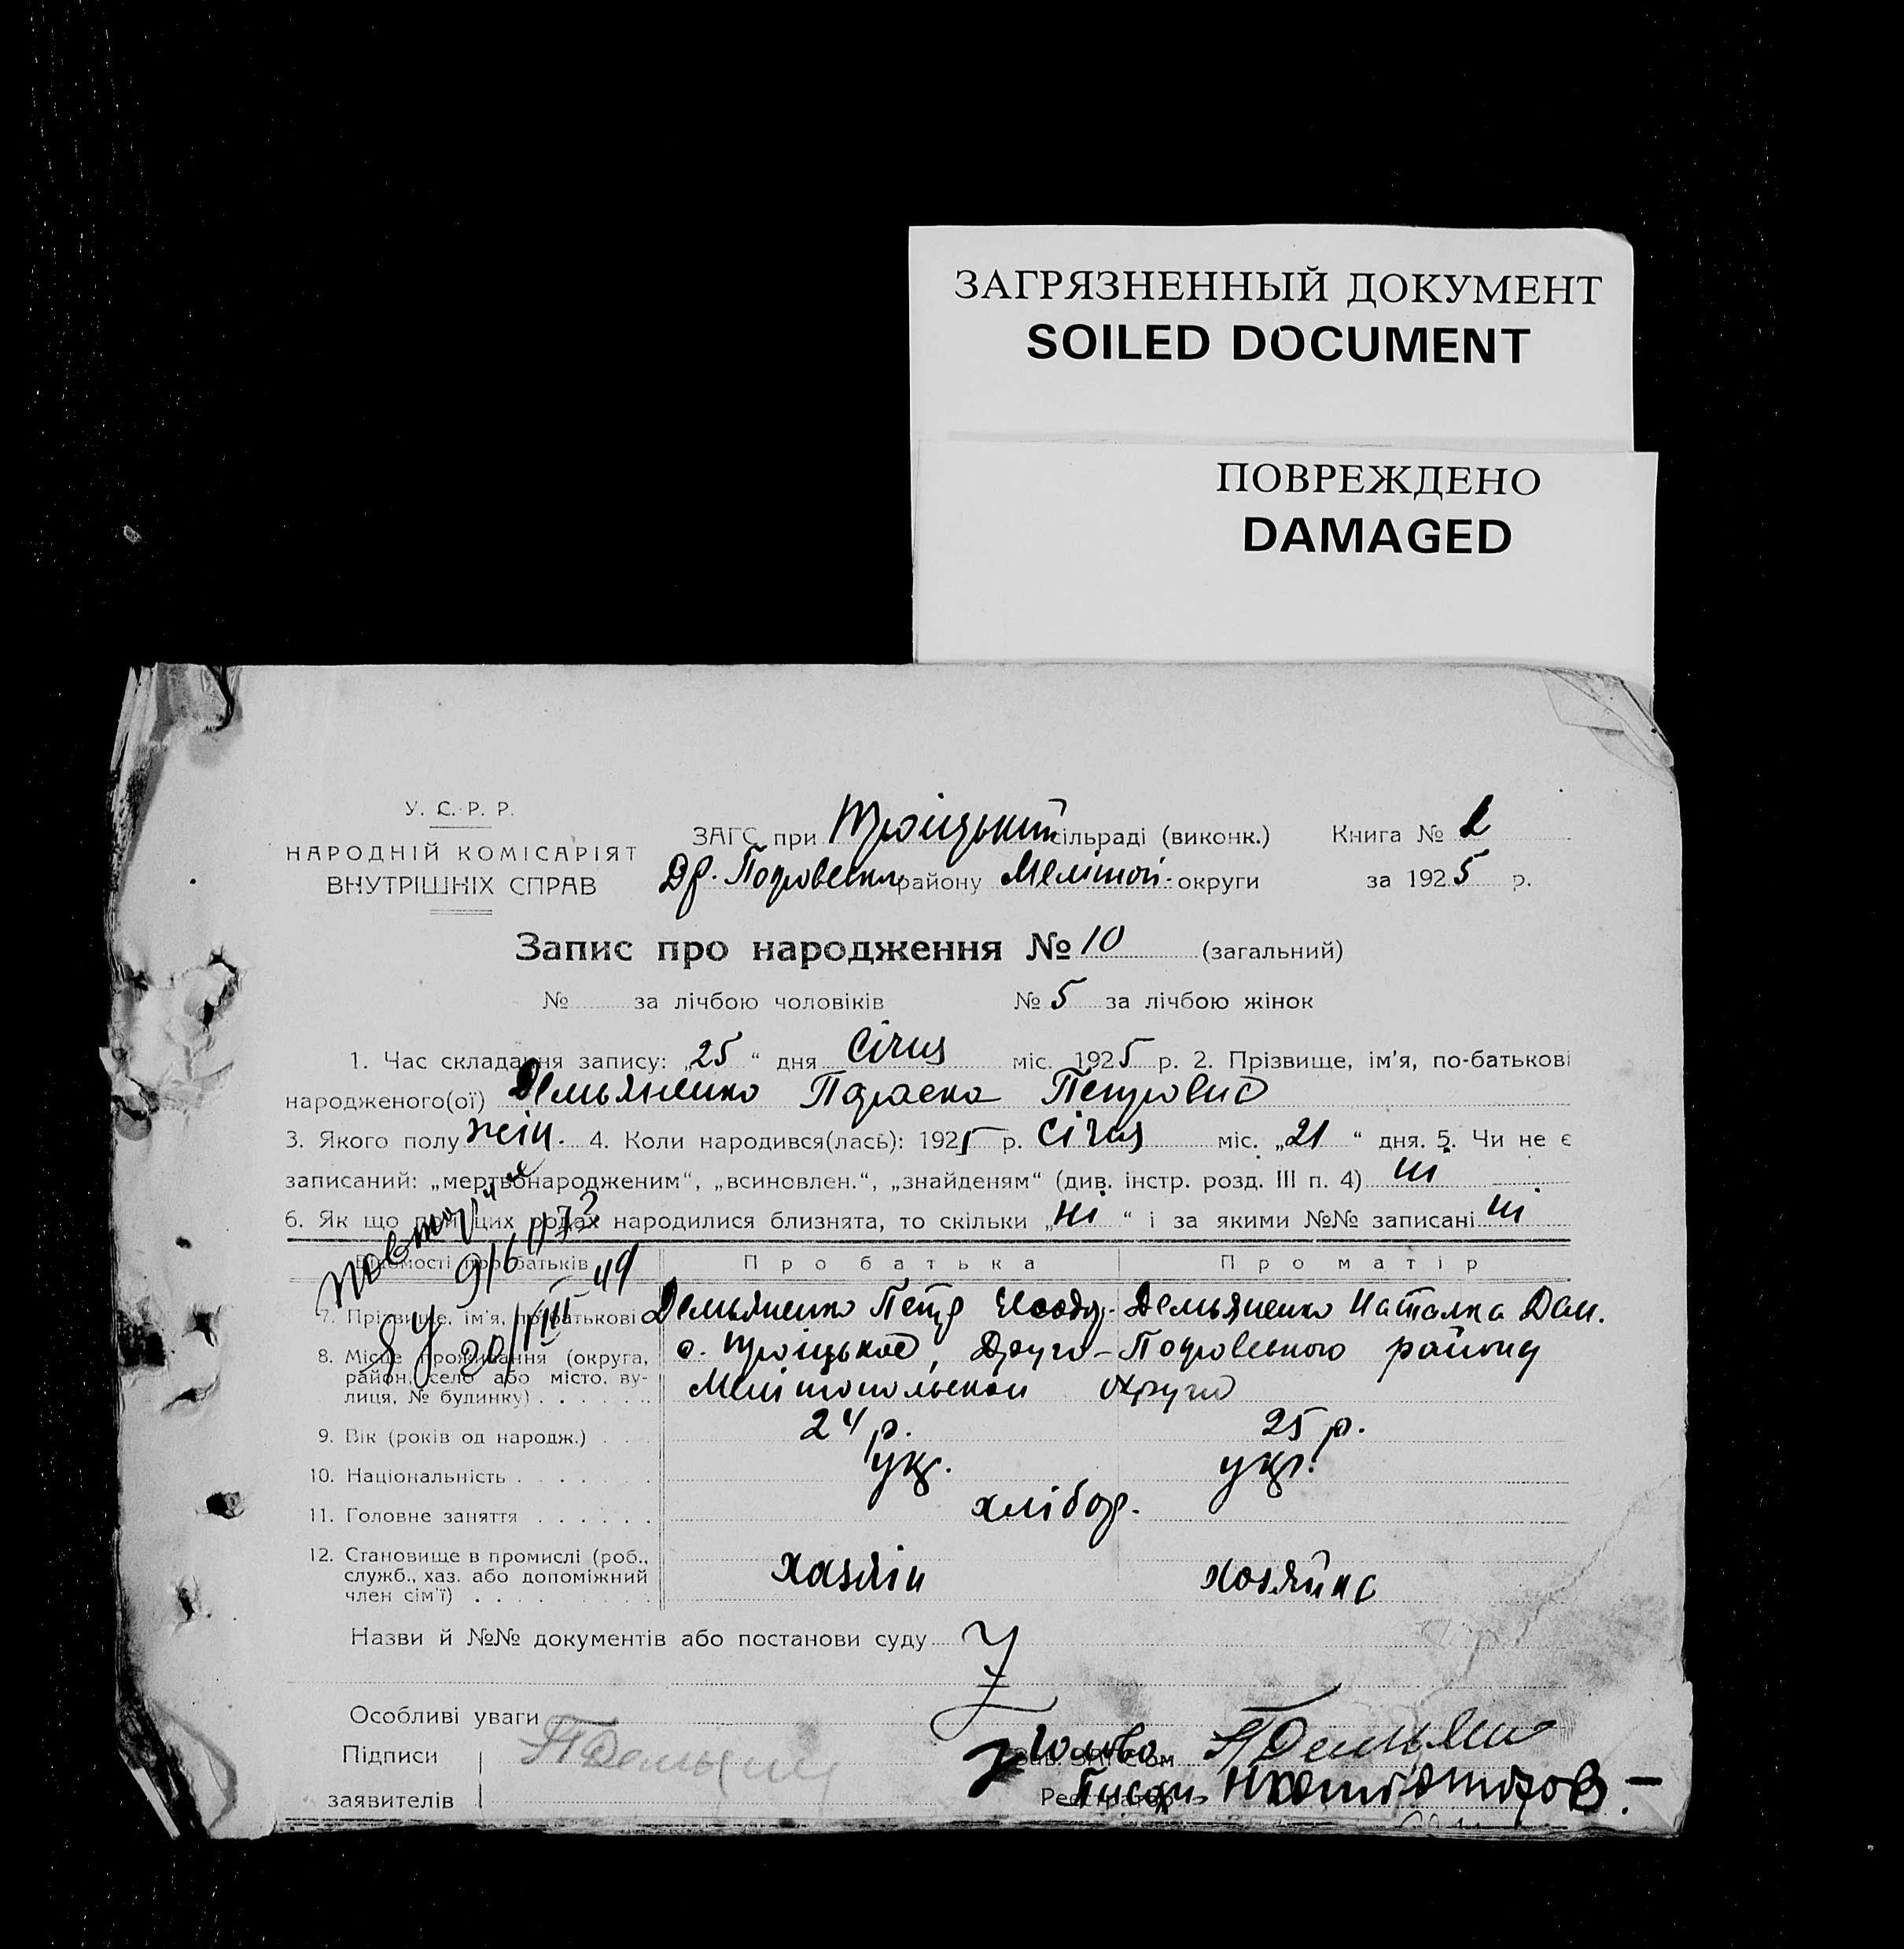 ЗАГРЯЗНЕННЫЙ ДОКУМЕНТ
SOILED DOCUMENT
ПОВРЕЖДЕНО
DAMAGED
У. С. Р. Р.
НАРОДНІЙ КОМІСАРІЯТ
ВНУТРІШНІХ СПРАВ
ЗАГС при Троіцькій сільраді (виконк.) Книга № 1
Др. Покровськ району Меліտոп. округи за 1925 р.
Запис про народження № 10 (загальний)
№ за лічбою чоловіків № 5 за лічбою жінок
1. Час складання запису: „25“ дня Січня міс. 1925 р. 2. Прізвище, ім’я, по-батькові
народженого(ої) Демьяненко Параска Петровна
3. Якого полу жін. 4. Коли народився(лась): 1925 р. Січня міс. „21“ дня. 5. Чи не є
записаний: „мертвонародженим“, „всиновлен.“, „знайденям“ (див. інстр. розд. III п. 4) ні
6. Як що при цих родах народилися близнята, то скільки „ні“ і за якими №№ записані ні
Відомості про батьків Про батька Про матір
7. Прізвище, ім’я, по-батькові Демьяненко Петр Демьяненко Наталка Дан.
8. Місце проживання (округа, с. Троіцьке, Друго-Покровського району
район, село або місто, ву- Мелітопольскои округи
лиця, № будинку)
9. Вік (років од народж.) 24 р. 25 р.
10. Національність укр. укр.
11. Головне заняття хлібор.
12. Становище в промислі (роб., хазяін хозяйка
служб., хаз. або допоміжний
член сім’ї)
Назви й №№ документів або постанови суду
Особливі уваги
Підписи
заявителів
Голова
Реєстратор